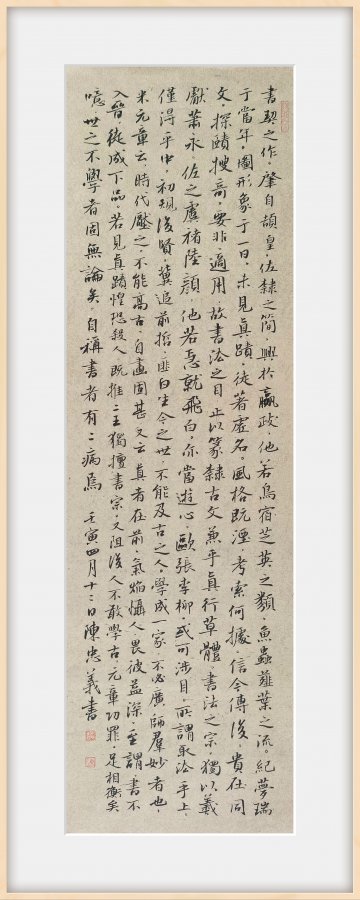 書契之作，肇自頡皇，佐隸之簡，興於嬴政。他若鳥宿芝英之類，魚蟲薤葉之流，紀夢瑞
于當年，圖形象于一日，未見真蹟，徒著虛名。風格既湮，考索何據。信今傳後，貴在同
文，探賾搜奇，要非適用。故書法之目，止以篆隸古文，兼乎真行草體。書法之宗，獨以羲
獻蕭永，佐之虞褚陸顏。他若急就飛白，亦當遊心，歐張李柳，或可涉目。所謂取法乎上，
僅得乎中，初規後賢，冀追前哲，匪曰生今之世，不能及古之人，學成一家，不必廣師羣妙者也，
米元章云，時代壓之，不能高古，自畫固甚。又云，真者在前，氣焰懾人，畏彼益深。至謂書不
入晉，徒成下品。若見真蹟，惶恐殺人。既推二王獨擅書宗，又阻後人不敢學古，元章功罪，足相衡矣
噫，世之不學者固無論矣，自稱書者有二病焉　壬寅四月十二日陳忠義書